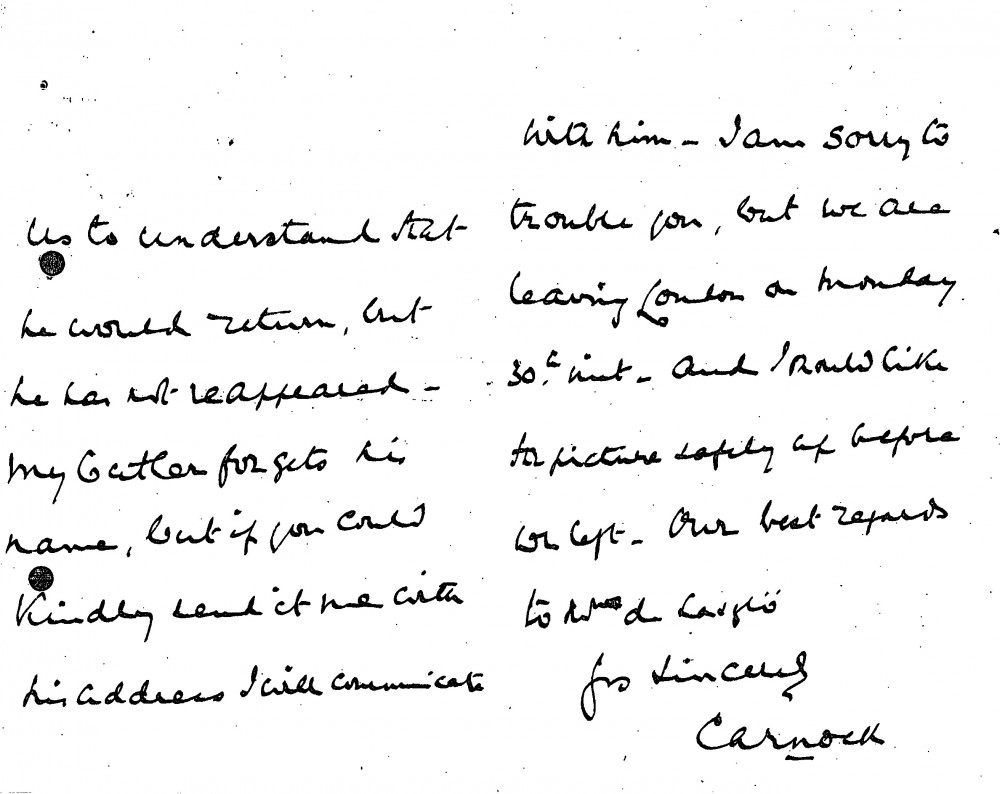 us to understand that
he would return, but
he has not reappeared -
My butler forgets his
name, but if you could
Kindly send it me with
his address I will communicate
with him - I am sorry to
trouble you, but we are
leaving London on Monday
30th inst - and I should like
the picture safely up before
we left - Our best regards
to Mrs de László
Yrs sincerely
Carnock